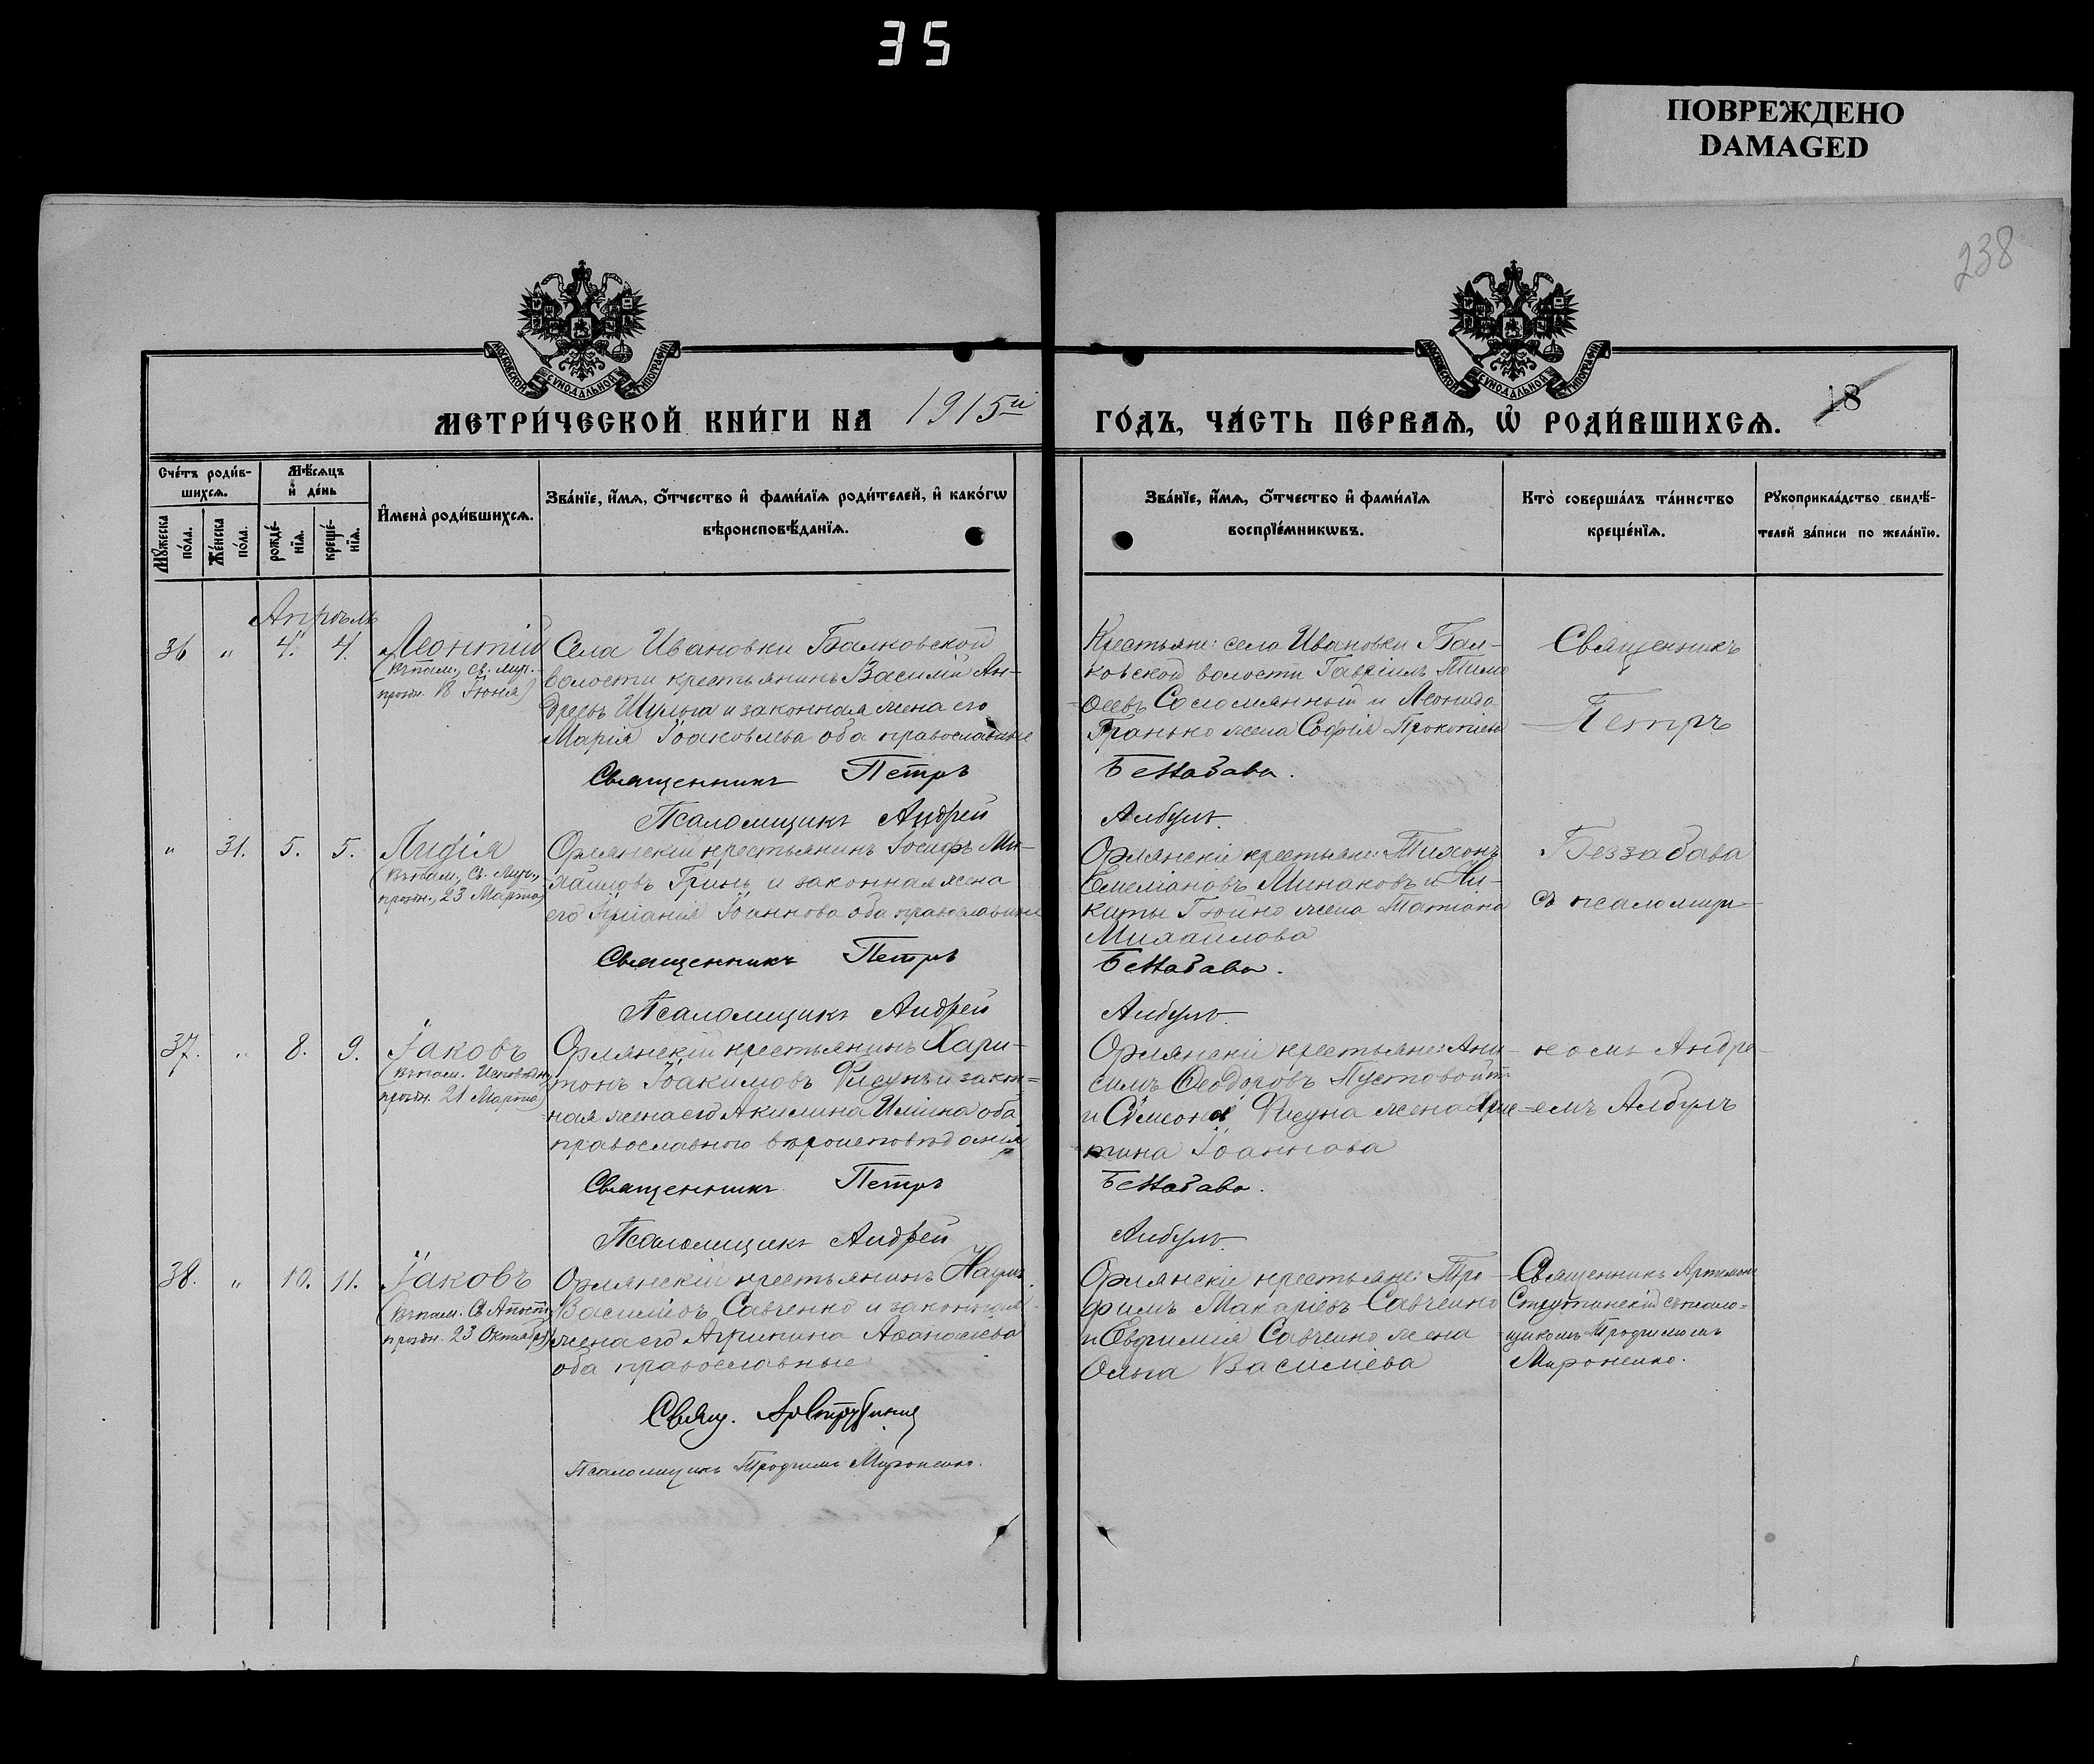 35
ПОВРЕЖДЕНО
DAMAGED
238
МОСКОВСКОЙ СѴНОДАЛЬНОЙ ТИПОГРАФІИ
МОСКОВСКОЙ СѴНОДАЛЬНОЙ ТИПОГРАФІИ
18
МЕТРИ́ЧЕСКОЙ КНИ́ГИ НА 1915й
ГО́ДЪ, ЧА́СТЬ ПЕ́РВАѦ, Ѡ҆ РОДИ́ВШИХСѦ.
Сче́тъ роди́в-
шихсѧ.
Мꙋ́жеска
по́ла.
Же́нска
по́ла.
Мѣ́сѧцъ
и҆ де́нь
рожде́-
нїѧ.
креще́-
нїѧ.
И҆мена̀ роди́вшихсѧ.
Зва́нїе, и҆́мѧ, ѻ҆́тчество и҆ фами́лїѧ роди́телей, и҆ како́гѡ
вѣроисповѣ́данїѧ.
Зва́нїе, и҆́мѧ, ѻ҆́тчество и҆ фами́лїѧ
воспрїе́мникѡвъ.
Кто̀ соверша́лъ та́инство
креще́нїѧ.
Рꙋкоприкла́дство свидѣ́-
телей за́писи по жела́нїю.
Апрѣль
36 " 4. 4. Леонтій
(въ пам. св. муч.
празн. 18 Іюня)
Села Ивановки Балковской
волости крестьянинъ Василій Ан-
дреевъ Шульга и законная жена его
Марія Іоаковлева оба православные
Священникъ Петръ
Псаломщикъ Андрей
Крестьяне: села Ивановки Бал-
ковской волости Гавріилъ Тимо
ѳеевъ Соломянный и Леонида
Гранько жена Софія Прокопіева
Беззабава.
Албулъ.
Священникъ
Петръ
" 31. 5. 5. Лидія
(въ пам. Св. Муч.,
празн., 23 Марта)
Орлянскій крестьянинъ Іосифъ Ми-
хайловъ Гринь и законная жена
его Іоаннова оба православные
Священникъ Петръ
Псаломщикъ Андрей
Орлянскіе крестьяне: Тихонъ
Емеліановъ Минаковъ и Ни-
киты жена Татіана
Михайлова
Беззабава.
Албулъ.
Беззабава
съ псаломщи-
37. " 8. 9. Іаковъ
(въ пам. Исповѣдн.
празн. 21 Марта)
Орлянскій крестьянинъ Хари-
тонъ Іоакимовъ Фисунъ и закон=
ная жена его Акилина Иліина оба
православнаго вѣроисповѣданія
Священникъ Петръ
Псаломщикъ Андрей
Орлянскіе крестьяне: Ани-
симъ Ѳеодоровъ Пустовойтъ
и Сѷмеона Фисуна жена Хри-
стина Іоаннова
Беззабава.
Албулъ.
комъ Андре-
емъ Албулъ
38. " 10. 11. Іаковъ
(въ пам. Св Апост.
празн. 23 Октября)
Орлянскій крестьянинъ Наумъ
Василіевъ Савченко и законная
жена его Агрипина Аѳанасіева
оба православные
Свящ. Ар Струтинскій
Псаломщикъ Трофимъ Мироненко.
Орлянскіе крестьяне: Тро-
фимъ Макаріевъ Савченко
и Евфимія Савченко жена
Ольга Василіева
Священникъ Артемонъ
Струтинскій съ псало=
щикомъ Трофимомъ
Мироненко.